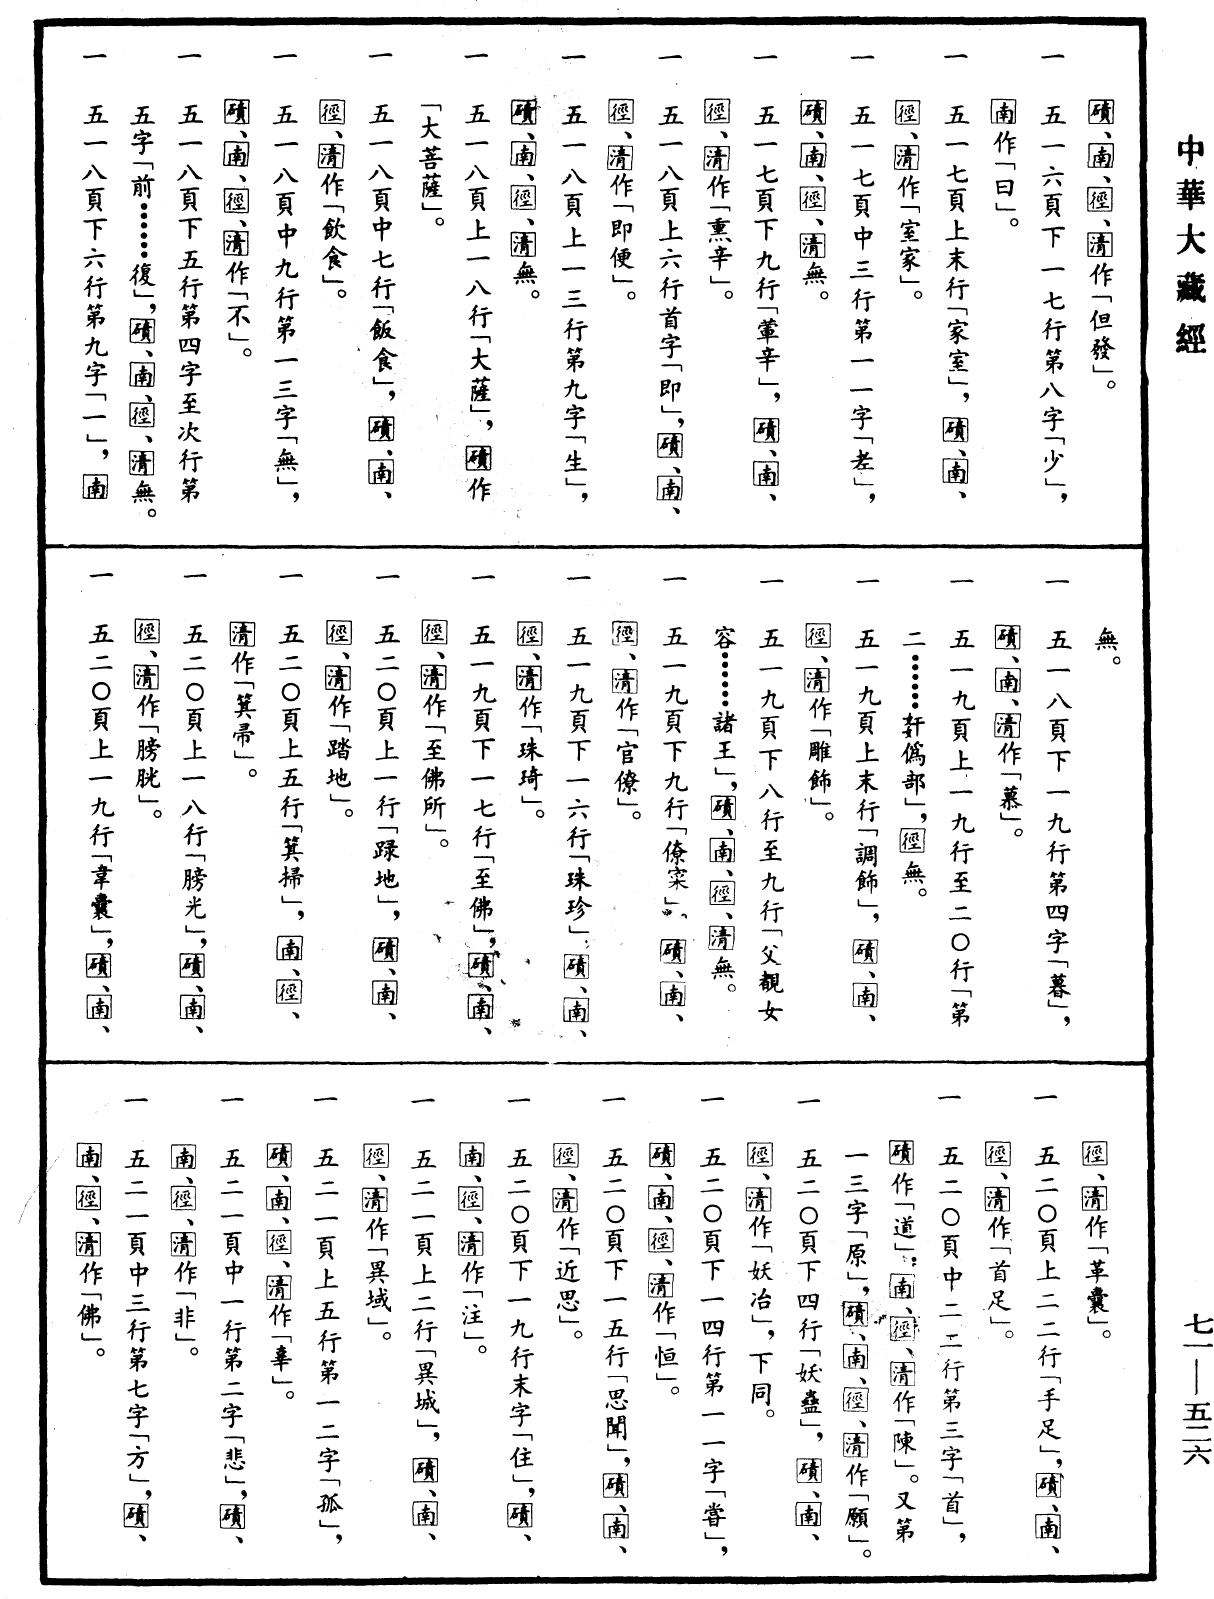 中華大藏經
磧、南、徑、清作「但發」。
一　五一六頁下一七行第八字「少」，
南作「曰」。
一　五一七頁上末行「家室」，磧、南、
徑、清作「室家」。
一　五一七頁中三行第一一字「差」，
磧、南、徑、清無。
一　五一七頁下九行「葷辛」，磧、南、
徑、清作「熏辛」。
一　五一八頁上六行首字「即」，磧、南、
徑、清作「即便」。
一　五一八頁上一三行第九字「生」，
磧、南、徑、清無。
一　五一八頁上一八行「大薩」，磧作
「大菩薩」。
一　五一八頁中七行「飯食」，磧、南、
徑、清作「飲食」。
一　五一八頁中九行第一三字「無」，
磧、南、徑、清作「不」。
一　五一八頁下五行第四字至次行第
五字「前……復」，磧、南、徑、清無。
一　五一八頁下六行第九字「一」，南
無。
一　五一八頁下一九行第四字「暮」，
磧、南、清作「慕」。
一　五一九頁上一九行至二〇行「第
二……奸僞部」，徑無。
一　五一九頁上末行「調飾」，磧、南、
徑、清作「雕飾」。
一　五一九頁下八行至九行「父覩女
容……諸王」，磧、南、徑、清無。
一　五一九頁下九行「僚寀」，磧、南、
徑、清作「官僚」。
一　五一九頁下一六行「珠珍」，磧、南、
徑、清作「珠琦」。
一　五一九頁下一七行「至佛」，磧、南、
徑、清作「至佛所」。
一　五二〇頁上一行「踩地」，磧、南、
徑、清作「踏地」。
一　五二〇頁上五行「箕掃」，南、徑、
清作「箕帚」。
一　五二〇頁上一八行「膀光」，磧、南、
徑、清作「膀胱」。
一　五二〇頁上一九行「韋囊」，磧、南、
徑、清作「革囊」。
一　五二〇頁上二二行「手足」，磧、南、
徑、清作「首足」。
一　五二〇頁中二二行第三字「首」，
磧作「道」；南、徑、清作「陳」。又第
一三字「原」，磧、南、徑、清作「願」。
一　五二〇頁下四行「妖蠱」，磧、南、
徑、清作「妖冶」，下同。
一　五二〇頁下一四行第一一字「嘗」，
磧、南、徑、清作「恒」。
一　五二〇頁下一五行「思聞」，磧、南、
徑、清作「近思」。
一　五二〇頁下一九行末字「住」，磧、
南、徑、清作「注」。
一　五二一頁上二行「異城」，磧、南、
徑、清作「異域」。
一　五二一頁上五行第一二字「孤」，
磧、南、徑、清作「辜」。
一　五二一頁中一行第二字「悲」，磧、
南、徑、清作「非」。
一　五二一頁中三行第七字「方」，磧、
南、徑、清作「佛」。
七一—五二六